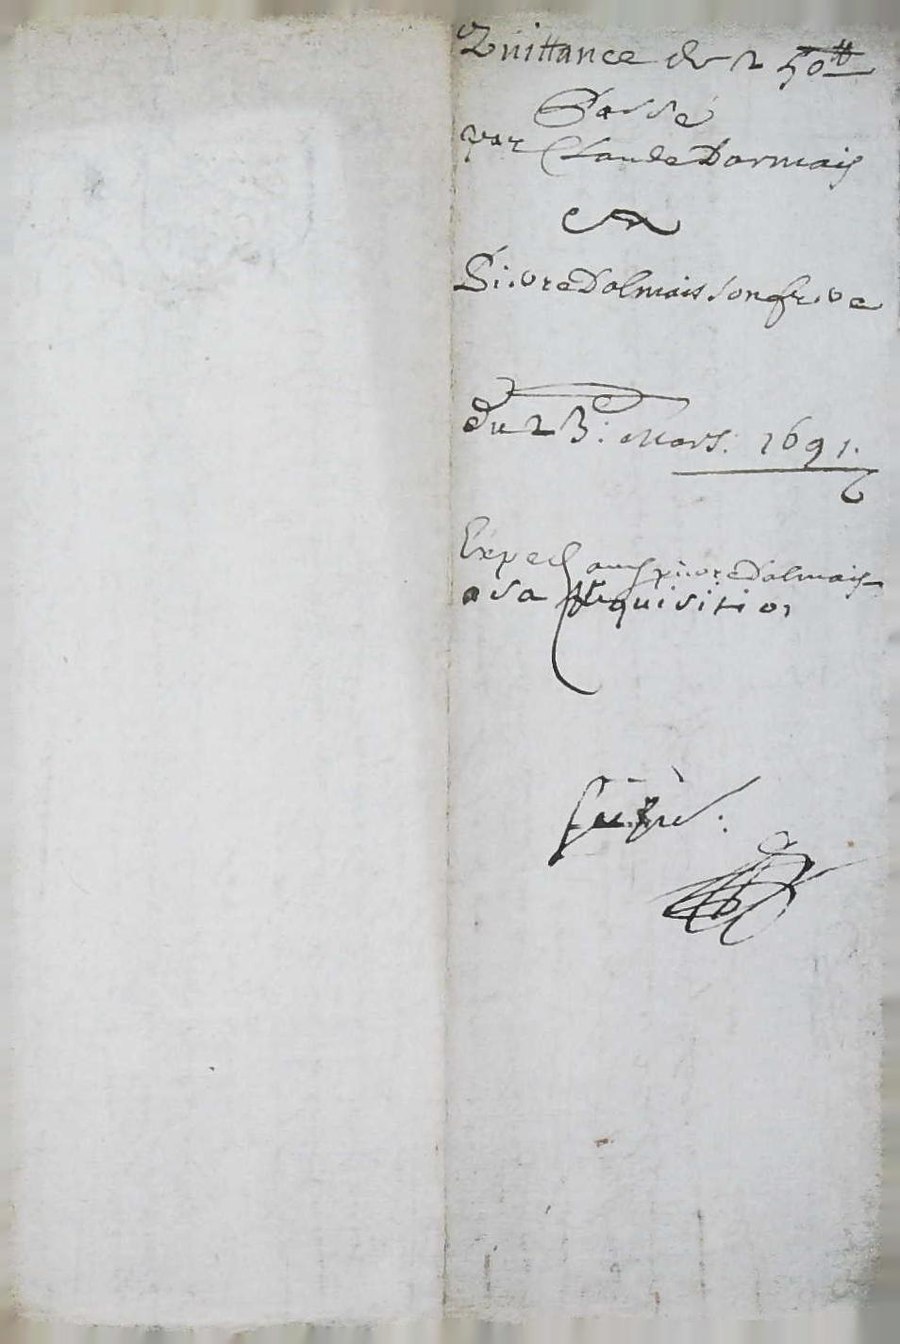 Quittance de 250 ₶
Passé
par Claude Darmais
A
Pierre Dalmais son frere
du 23: Mars: 1691.
Exped aud pierre Dalmais
a sa Requisition